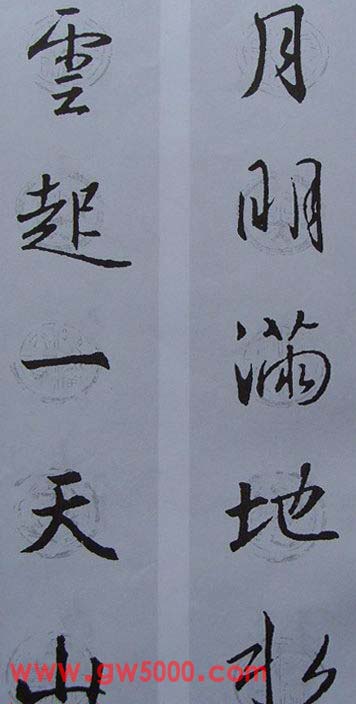 月明满地水
雲起一天山
www.gw5000.com